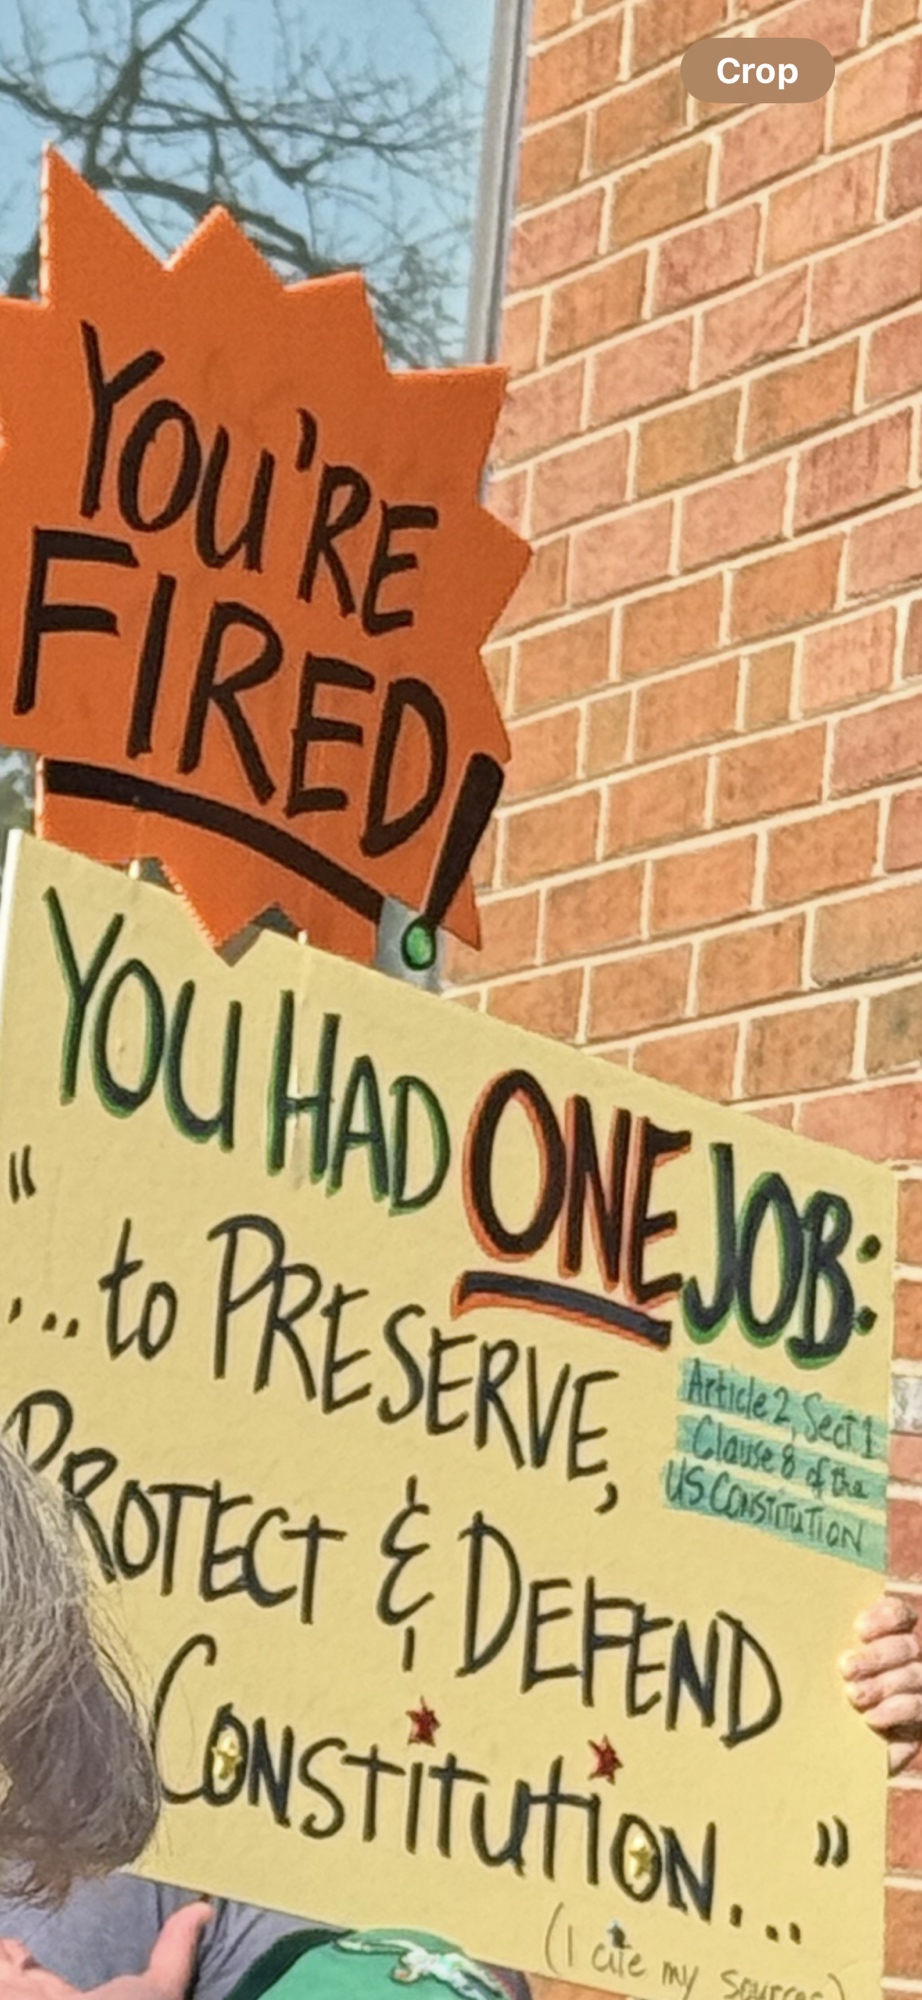 Crop
YOU'RE
FIRED!
YOU HAD ONE JOB:
"
...to PRESERVE,
Article 2, Sect 1
Clause 8 of the
US CONSTITUTION
PROTECT & DEFEND
CONSTITUTION..."
(I cite my sources)